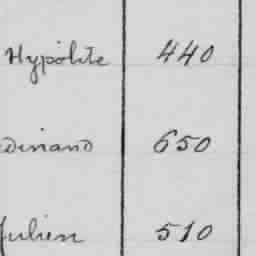 Hypólite 440
dinand 650
Julien 510